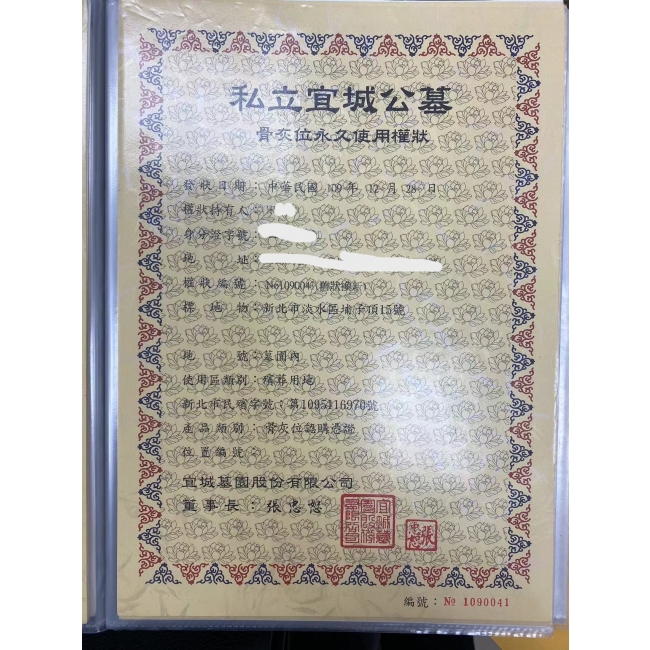 私立宜城公墓
骨灰位永久使用權狀
發狀日期：中華民國 109 年 12 月 28 日
權狀持有人：
身分證字號：
地 址：
權狀編號：No109004
標 地 物：新北市淡水區埔子頂15號
地 號：墓園內
使用區類別：殯葬用地
新北市民殯字號：第1095116970號
產品類別：骨灰位認購憑證
位置編號：
宜城墓園股份有限公司
董事長：張忠恕
編號：№ 1090041